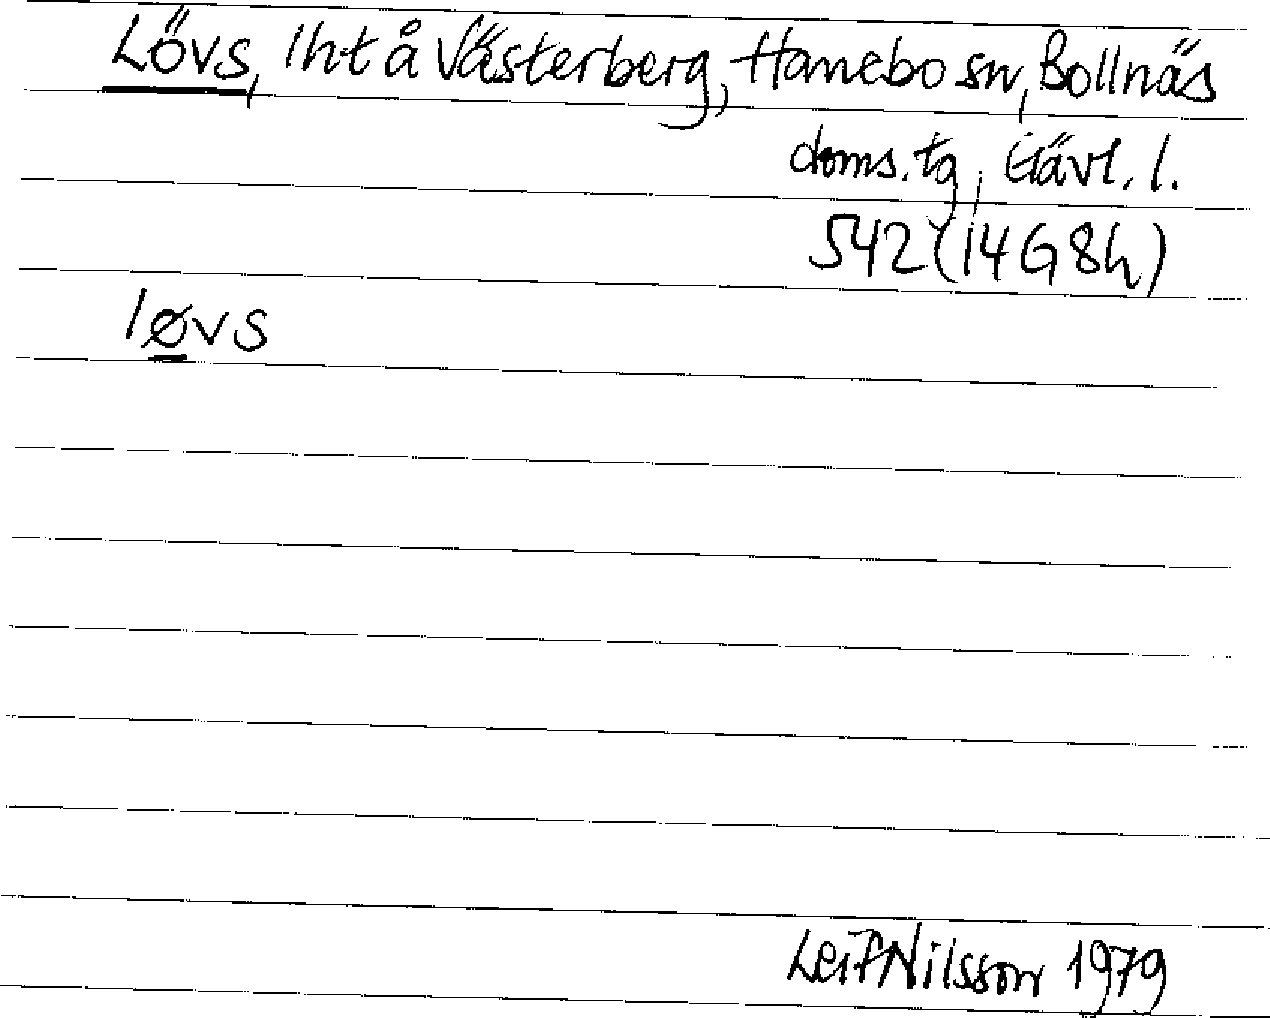 Lövs, lht å Västerberg, Hanebo sn, Bollnäs
doms. tg, Gävl. l.
542 (14G8h)
løvs
Leif Nilsson 1979